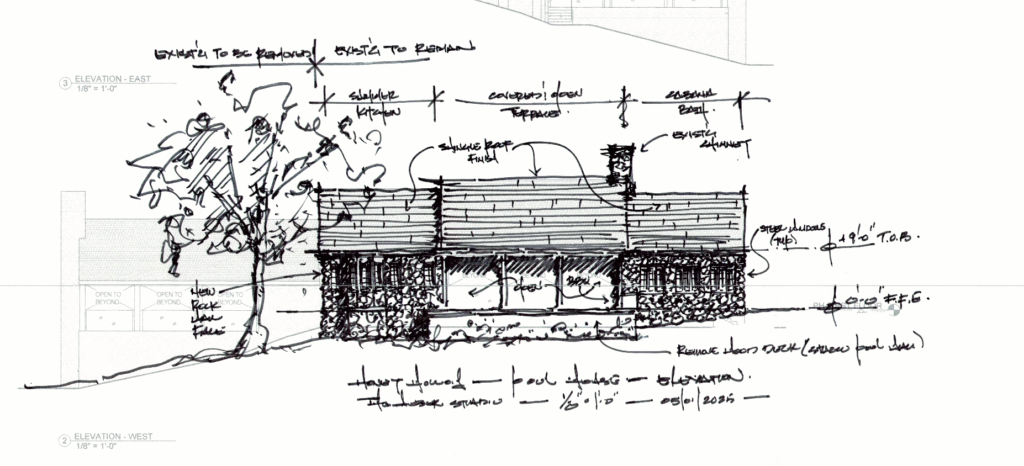 EXIST'G TO BE REMOVED
EXIST'G TO REMAIN
3 ELEVATION - EAST
1/8" = 1'-0"
SUMMER
KITCHEN
COVERED / OPEN
TERRACE
CABANA
BATH
EXIST'G
CHIMNEY
SHINGLE ROOF
FINISH
STEEL WINDOWS
(TYP)
+9'-0" T.O.B.
NEW
ROCK
WALL
FACE
OPEN TO
BEYOND
OPEN TO
BEYOND
OPEN TO
BEYOND
OPEN
0'-0" F.F.E.
REMOVE WOOD DECK
POOL HOUSE — ELEVATION.
1/8" = 1'-0" — 05/01/2025 —
2 ELEVATION - WEST
1/8" = 1'-0"